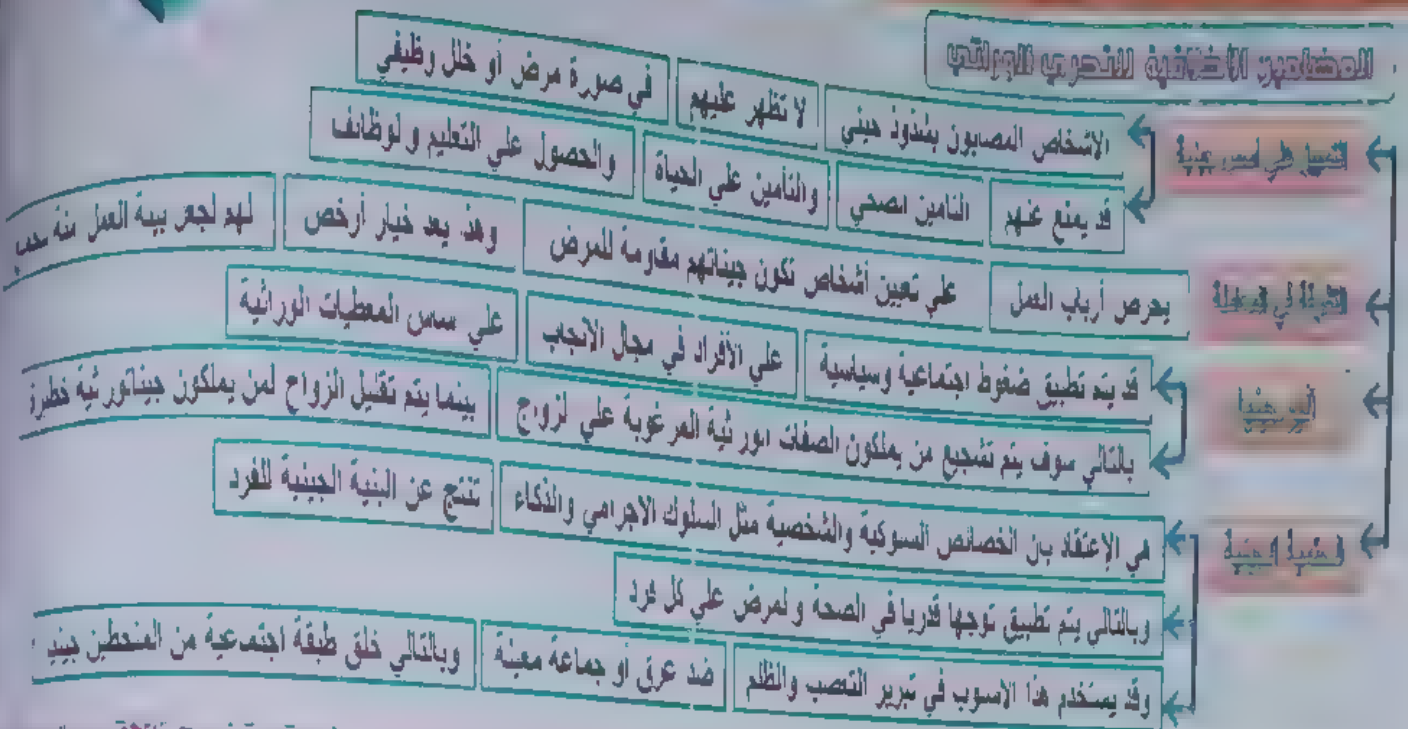 المضامين الأخلاقية للتحري الوراثي
الأشخاص المصابون بشذوذ جيني لا تظهر عليهم في صورة مرض أو خلل وظيفي
قد يمنع عنهم التامين الصحي والتأمين علي الحياة والحصول علي التعليم والوظائف
يحرص أرباب العمل علي تعيين أشخاص تكون جيناتهم مقاومة للمرض وهذا يعد خيار أرخص لهم لجعل بيئة العمل
قد يتم تطبيق ضغوط اجتماعية وسياسية علي الأفراد في مجال الانجاب علي المعطيات الوراثية
بالتالي سوف يتم تشجيع من يملكون الصفات الوراثية المرغوبة علي الزواج بينما يتم تقليل الزواج لمن يملكون خطيرة
هي الإعتقاد بان الخصائص السلوكية والشخصية مثل السلوك الاجرامي والذكاء تنتج عن البنية الجينية للفرد
وبالتالي يتم تطبيق توجها قدريا في الصحة والمرض علي كل فرد
وقد يستخدم هذا الاسلوب في تبرير التعصب والظلم ضد عرق أو جماعة معينة وبالتالي خلق طبقة اجتماعية من المنحطين